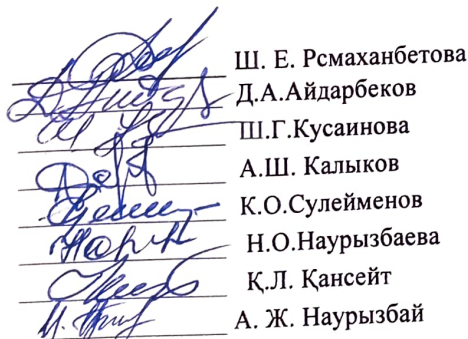 Ш. Е. Рсмаханбетова
Д.А.Айдарбеков
Ш.Г.Кусаинова
А.Ш. Калыков
К.О.Сулейменов
Н.О.Наурызбаева
Қ.Л. Қансейт
А. Ж. Наурызбай